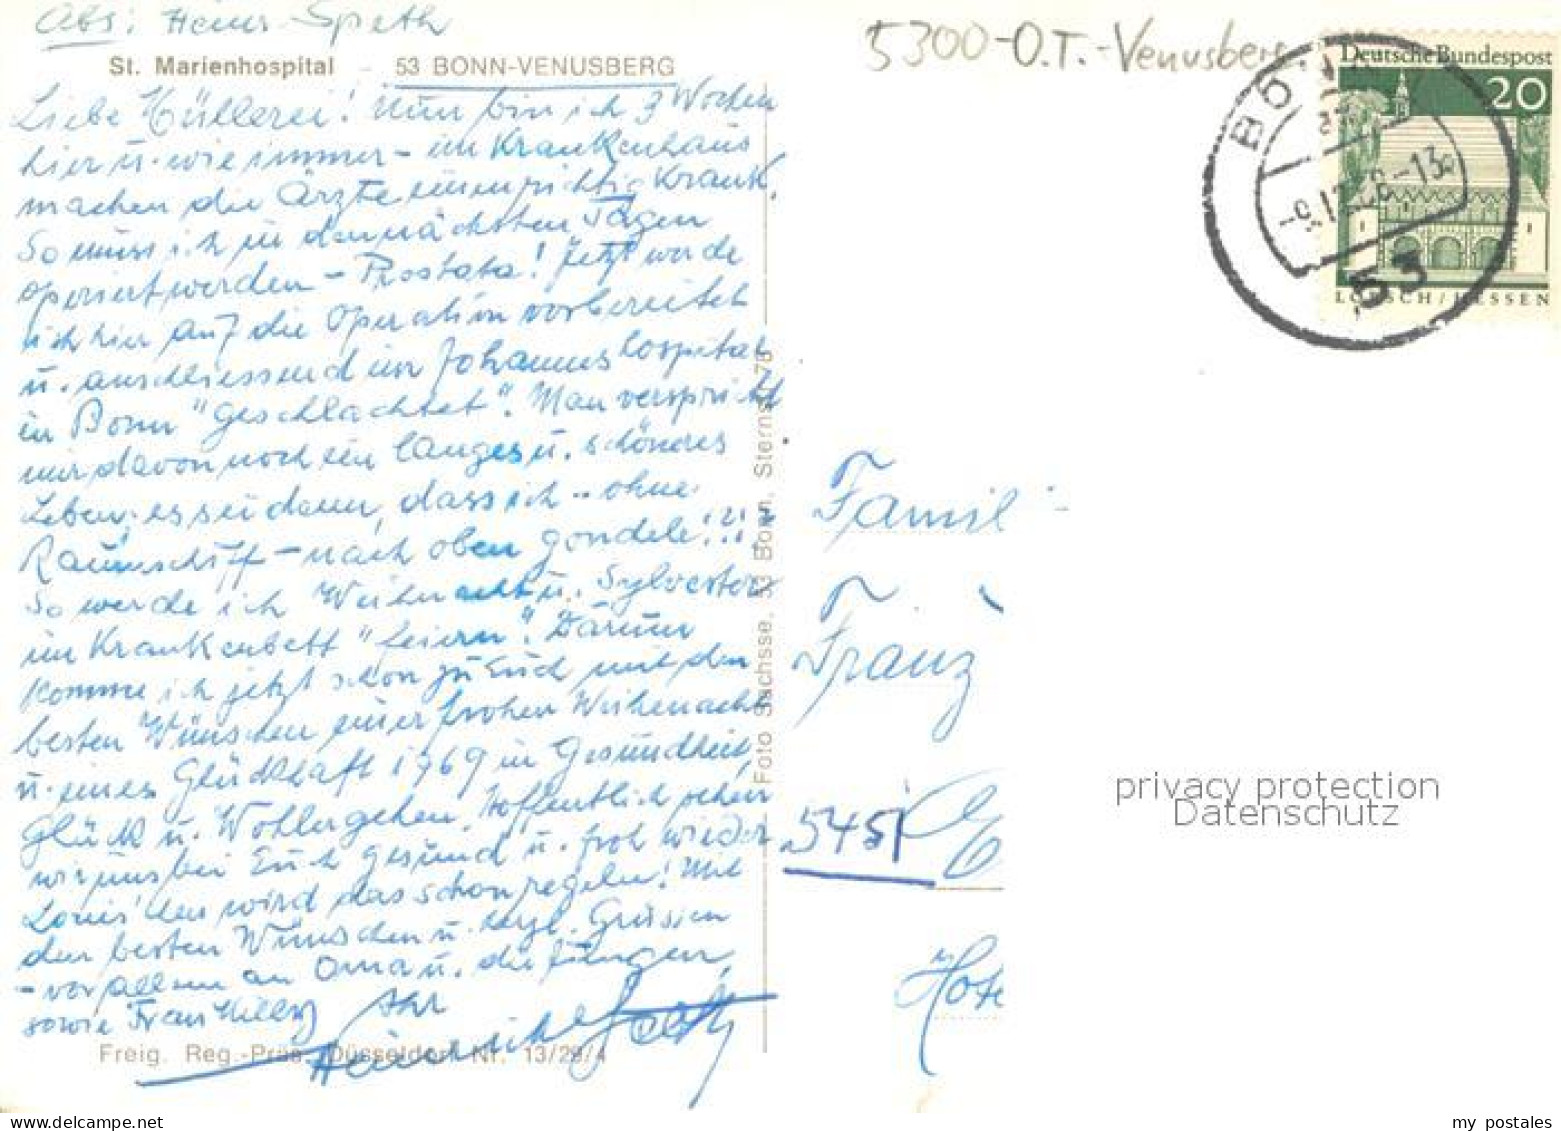 Abs: Heinr. Speth
St. Marienhospital - 53 BONN-VENUSBERG
Liebe Hüllerei! Nun bin ich 3 Wochen
hier u. wie immer - im Krankenhaus
machen die Ärzte einen richtig krank.
So muss ich in den nächsten Tagen
operiert werden - Prostata! Jetzt werde
ich hier auf die Operation vorbereitet
u. anschliessend im Johanneshospital
in Bonn "geschlachtet". Man verspricht
mir davon noch ein langes u. schönes
Leben, es sei denn, dass ich .. ohne
Raumschiff - nach oben gondele!!!
So werde ich Weihnacht u. Sylvester
im Krankenbett "feiern". Darum
komme ich jetzt schon zu Euch mit den
besten Wünschen einer frohen Weihenacht
u. eines Glückhaft 1969 in Gesundheit,
Glück u. Wohlergehen. Hoffentlich sehen
wir uns bei Euch gesund u. froh wieder
Louis'chen wird das schon regeln! Mit
den besten Wünschen u. herzl. Grüssen
- vor allem an Oma u. die Jungen,
sowie Frau Willy Ihr
Heinrich Speth
Freig. Reg.-Präs. Düsseldorf Nr. 13/29/4
Foto Sachsse, 53 Bonn, Sternstr. 78
5300-O.T.-Venusberg
Deutsche Bundespost
20
LORSCH/HESSEN
BONN
53
Famil
Franz
5451
Hote
privacy protection
Datenschutz
my postales